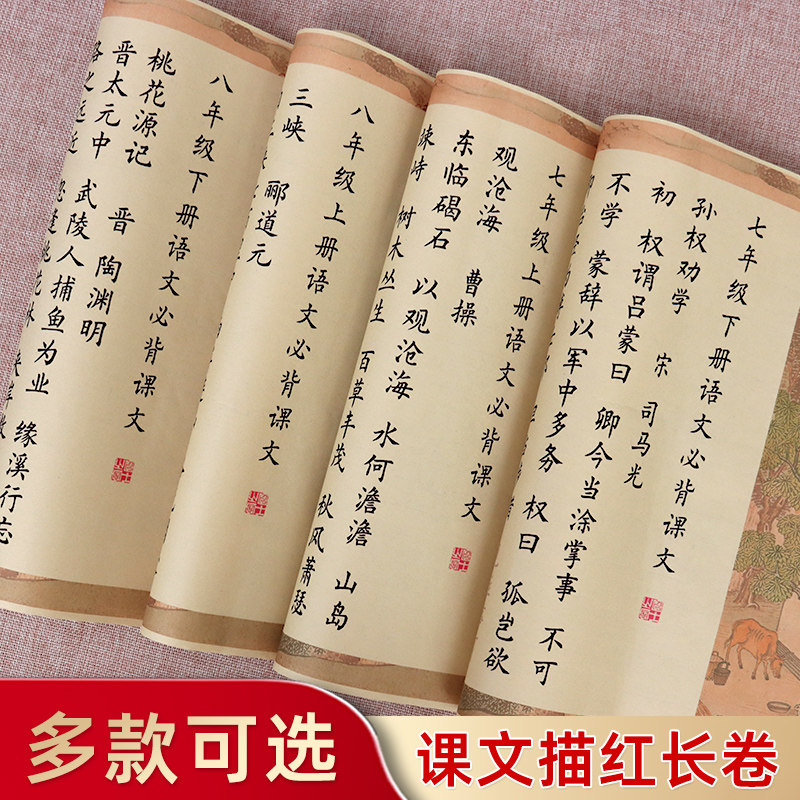 七年级下册语文必背课文
孙权劝学 宋 司马光
初 权谓吕蒙曰 卿今当涂掌事 不可
不学 蒙辞以军中多务 权曰 孤岂欲
七年级上册语文必背课文
观沧海 曹操
东临碣石 以观沧海 水何澹澹 山岛
竦峙 树木丛生 百草丰茂 秋风萧瑟
八年级上册语文必背课文
三峡 郦道元
八年级下册语文必背课文
桃花源记 晋 陶渊明
晋太元中 武陵人捕鱼为业 缘溪行 忘
路之远近 忽逢桃花林 夹岸
多款可选
课文描红长卷